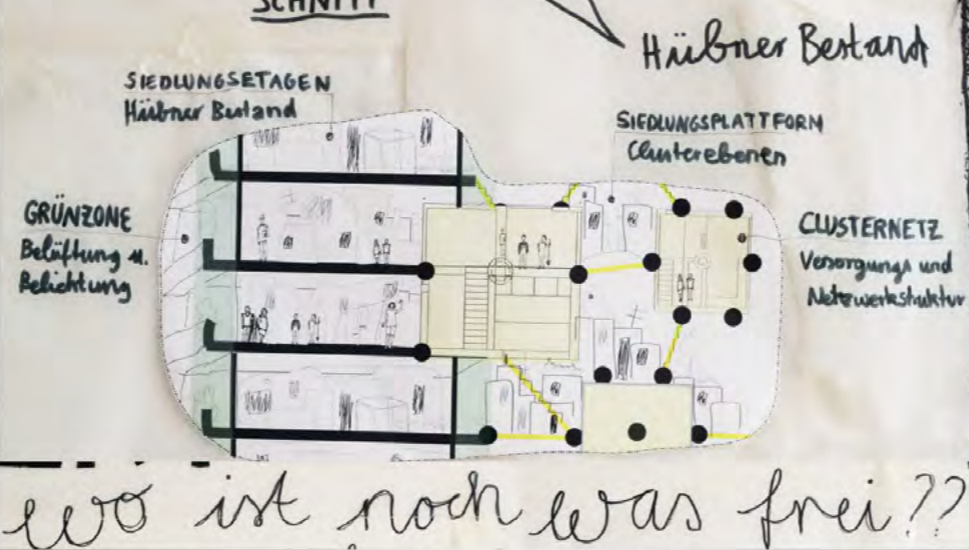 SCHNITT
Hübner Bestand
SIEDLUNGSETAGEN
Hübner Bestand
SIEDLUNGSPLATTFORM
Clusterebenen
GRÜNZONE
Belüftung u.
Belichtung
CLUSTERNETZ
Versorgungs und
Netzwerkstruktur
wo ist noch was frei??